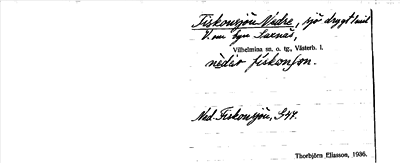 Fiskonsjön Nedre, sjö drygt 1 mil
V. om byn Laxnäs,
Vilhelmina sn. o. tg., Västerb. l.
nèdər fískonʃon.
Ned. Fiskonsjön, S44.
Thorbjörn Eliasson, 1936.